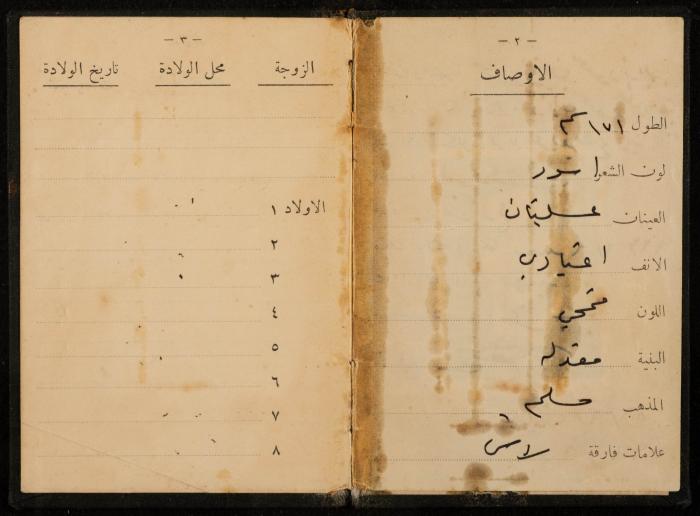 - ٢ -
الاوصاف
الطول ١٧١ سم
لون الشعر اسود
العينان عسليتان
الانف اعتيادي
اللون قمحي
البنية معتدلة
المذهب مسلم
علامات فارقة
- ٣ -
الزوجة محل الولادة تاريخ الولادة
الاولاد ١
٢
٣
٤
٥
٦
٧
٨